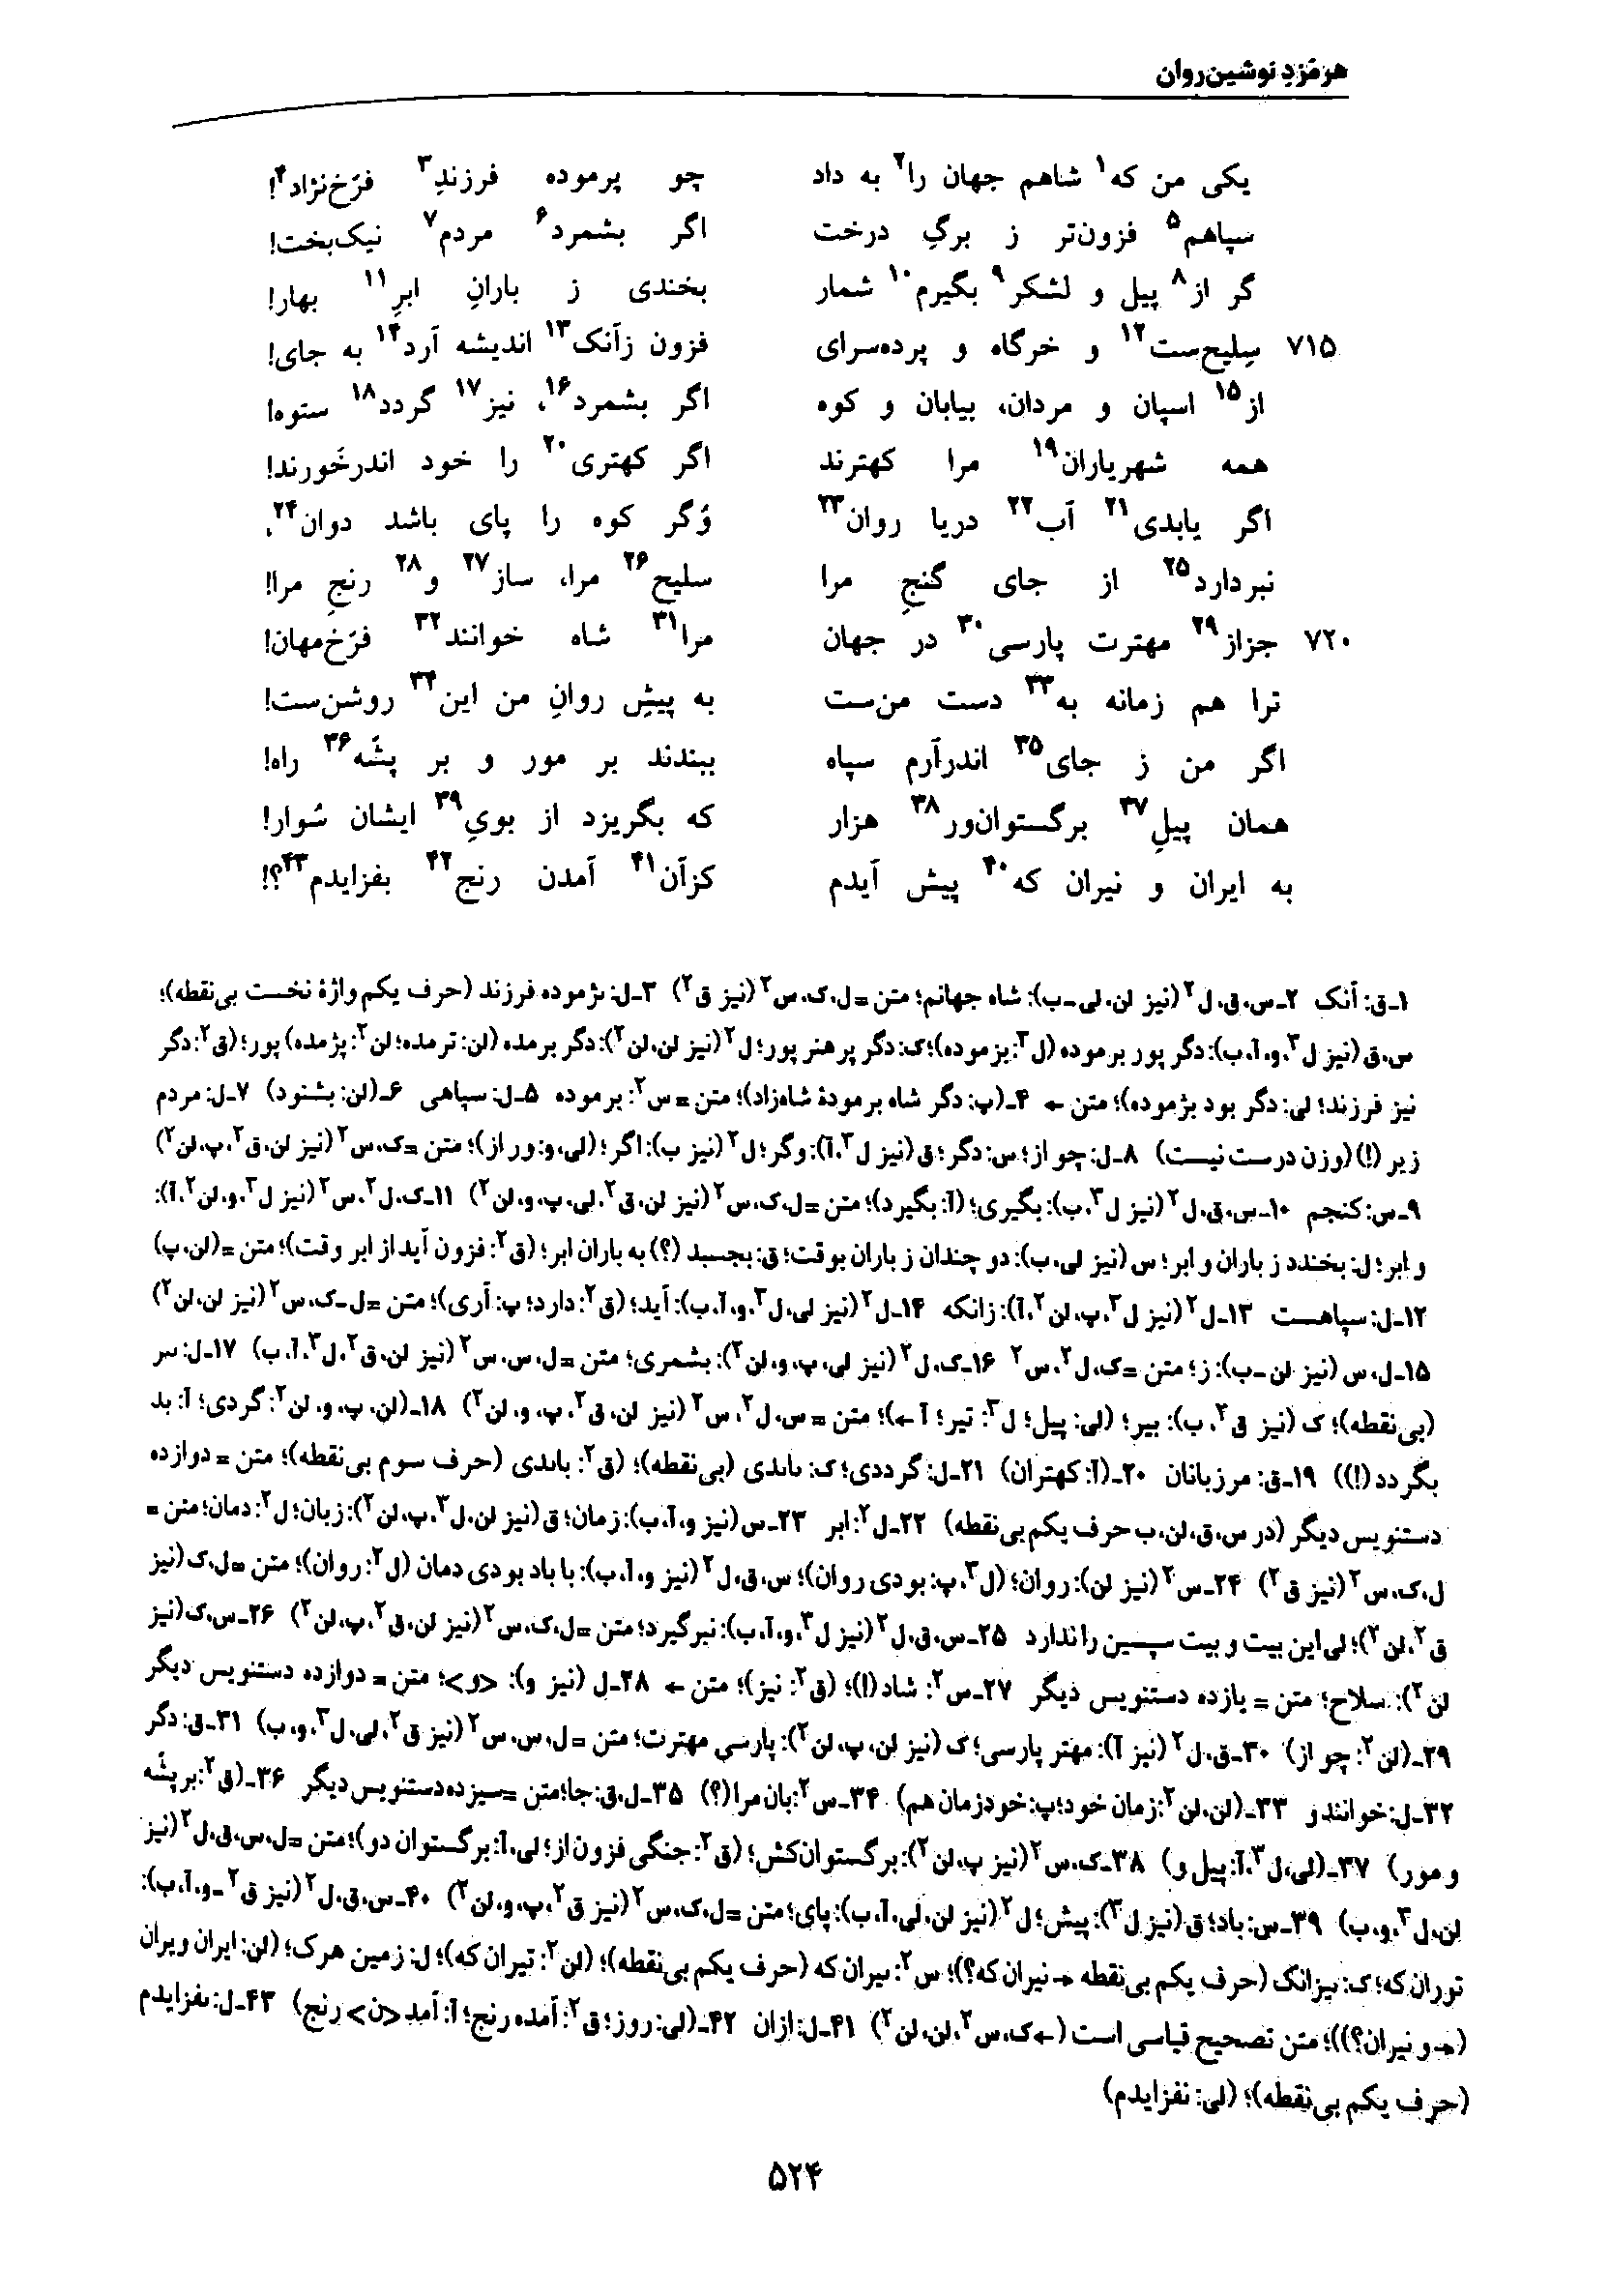 هرمزدِ نوشین‌روان
یکی من که۱ شاهم جهان را۲ به داد چو پرموده فرزندِ۳ فرّخ‌نژاد۴!
سپاهم۵ فزون‌تر ز برگِ درخت اگر بشمرد۶ مردم۷ نیک‌بخت!
گر از۸ پیل و لشکر۹ بگیرم۱۰ شمار بخندی ز بارانِ ابرِ۱۱ بهار!
۷۱۵ سِلیح‌ست۱۲ و خرگاه و پرده‌سرای فزون زآنک۱۳ اندیشه آرد۱۴ به جای!
از۱۵ اسپان و مردان، بیابان و کوه اگر بشمرد۱۶، نیز۱۷ گردد۱۸ ستوه!
همه شهریاران۱۹ مرا کهترند اگر کهتری۲۰ را خود اندرخَورند!
اگر یابدی۲۱ آب۲۲ دریا روان۲۳ وُگر کوه را پای باشد دوان۲۴،
نبردارد۲۵ از جای گنجِ مرا سلیح۲۶ مرا، ساز۲۷ و۲۸ رنجِ مرا!
۷۲۰ جزاز۲۹ مهترت پارسی۳۰ در جهان مرا۳۱ شاه خوانند۳۲ فرّخ‌مهان!
ترا هم زمانه به۳۳ دست من‌ست به پیشِ روانِ من این۳۴ روشن‌ست!
اگر من ز جای۳۵ اندرآرم سپاه ببندند بر مور و بر پشّه۳۶ راه!
همان پیلِ۳۷ برگستوان‌ور۳۸ هزار که بگریزد از بویِ۳۹ ایشان سُوار!
به ایران و نیران که۴۰ پیش آیدم کزآن۴۱ آمدن رنج۴۲ بفزایدم۴۳؟!
۱ـ ق: آنک ۲ـ س، ق، ل۲ (نیز لن، لی ـ ب): شاه جهانم؛ متن = ل، ک، س۲ (نیز ق۲) ۳ـ ل: ٮژموده فرزند (حرف یکم واژهٔ نخست بی‌نقطه)؛
س، ق (نیز ل۳، و، آ، ب): دگر پور برموده (ل۳: بزموده)؛ ک: دگر پر هنر پور؛ ل۲ (نیز لن، لن۲): دگر برمده (لن: ترمده؛ لن۲: پژمده) پور؛ (ق۲: دگر
نیز فرزند؛ لی: دگر بود بژموده)؛ متن ← ۴ـ (پ: دگر شاه برمودهٔ شاه‌زاد)؛ متن = س۲: برموده ۵ـ ل: سپاهی ۶ـ (لن: بشنود) ۷ـ ل: مردم
زیر (!) (وزن درست نیست) ۸ـ ل: چو از؛ س: دگر؛ ق (نیز ل۳، آ): وگر؛ ل۲ (نیز ب): اگر؛ (لی، و: ور از)؛ متن = ک، س۲ (نیز لن، ق۲، پ، لن۲)
۹ـ س: کنجم ۱۰ـ س، ق، ل۲ (نیز ل۳، ب): بگیری؛ (آ: بگیرد)؛ متن = ل، ک، س۲ (نیز لن، ق۲، لی، پ، و، لن۲) ۱۱ـ ک، ل۲، س۲ (نیز ل۳، و، لن۲، آ):
و ابر؛ ل: بخندد ز باران و ابر؛ س (نیز لی، ب): دو چندان ز باران بوقت؛ ق: بجسبد (؟) به باران ابر؛ (ق۲: فزون آید از ابر وقت)؛ متن = (لن، پ)
۱۲ـ ل: سپاهست ۱۳ـ ل۲ (نیز ل۳، پ، لن۲، آ): زانکه ۱۴ـ ل۲ (نیز لی، ل۳، و، آ، ب): آید؛ (ق۲: دارد؛ پ: آری)؛ متن = ل ـ ک، س۲ (نیز لن، لن۲)
۱۵ـ ل، س (نیز لن ـ ب): ز؛ متن = ک، ل۲، س۲ ۱۶ـ ک، ل۲ (نیز لی، پ، و، لن۲): بشمری؛ متن = ل، س، س۲ (نیز لن، ق۲، ل۳، آ، ب) ۱۷ـ ل: ٮٮر
(بی‌نقطه)؛ ک (نیز ق۲، ب): بیر؛ (لی: پیل؛ ل۳: تیر؛ آ ←)؛ متن = س، ل۲، س۲ (نیز لن، ق۲، پ، و، لن۲) ۱۸ـ (لن، پ، و، لن۲: گردی؛ آ: بد
بگردد (!)) ۱۹ـ ق: مرزبانان ۲۰ـ (آ: کهتران) ۲۱ـ ل: گرددی؛ ک: ٮاٮدی (بی‌نقطه)؛ (ق۲: باٮدی (حرف سوم بی‌نقطه)؛ متن = دوازده
دستنویس دیگر (در س، ق، لن، ب حرف یکم بی‌نقطه) ۲۲ـ ل۲: ابر ۲۳ـ س (نیز و، آ، ب): زمان؛ ق (نیز لن، ل۳، پ، لن۲): زبان؛ ل۲: دمان؛ متن =
ل، ک، س۲ (نیز ق۲) ۲۴ـ س۲ (نیز لن): روان؛ (ل۳، پ: بودی روان)؛ س، ق، ل۲ (نیز و، آ، ب): با باد بودی دمان (ل۲: روان)؛ متن = ل، ک (نیز
ق۲، لن۲)؛ لی این بیت و بیت سپسین را ندارد ۲۵ـ س، ق، ل۲ (نیز ل۳، و، آ، ب): نبرگیرد؛ متن = ل، ک، س۲ (نیز لن، ق۲، پ، لن۲) ۲۶ـ س، ک (نیز
لن۲): سلاح؛ متن = یازده دستنویس دیگر ۲۷ـ س۲: شاد (!)؛ (ق۲: نیز)؛ متن ← ۲۸ـ ل (نیز و): <و>؛ متن = دوازده دستنویس دیگر
۲۹ـ (لن۲: چو از) ۳۰ـ ق، ل۲ (نیز آ): مهتر پارسی؛ ک (نیز لن، پ، لن۲): پارسی مهترت؛ متن = ل، س، س۲ (نیز ق۲، لی، ل۳، و، ب) ۳۱ـ ق: دگر
۳۲ـ ل: خوانند و ۳۳ـ (لن، لن۲: زمان خود؛ پ: خود زمان هم) ۳۴ـ س۲: بان مرا (؟) ۳۵ـ ل، ق: جا؛ متن = سیزده دستنویس دیگر ۳۶ـ (ق۲: بر پشّه
و مور) ۳۷ـ (لی، ل۳، آ: پیل و) ۳۸ـ ک، س۲ (نیز پ، لن۲): برگستوان‌کش؛ (ق۲: جنگی فزون از؛ لی، آ: برگستوان دو)؛ متن = ل، س، ق، ل۲ (نیز
لن، ل۳، و، ب) ۳۹ـ س: باد؛ ق (نیز ل۳): پیش؛ ل۲ (نیز لن، لی، آ، ب): پای؛ متن = ل، ک، س۲ (نیز ق۲، پ، و، لن۲) ۴۰ـ س، ق، ل۲ (نیز ق۲ ـ و، آ، ب):
توران که؛ ک: ٮیزانک (حرف یکم بی‌نقطه → نیران که؟)؛ س۲: ٮیران که (حرف یکم بی‌نقطه)؛ (لن۲: تیران که)؛ ل: زمین هرک؛ (لن: ایران ویران
(→ و نیران؟))؛ متن تصحیح قیاسی است (← ک، س۲، لن، لن۲) ۴۱ـ ل: ازان ۴۲ـ (لی: روز؛ ق۲: آمده رنج؛ آ: آمد <ن> رنج) ۴۳ـ ل: ٮفزایدم
(حرف یکم بی‌نقطه)؛ (لی: نفزایدم)
۵۲۴